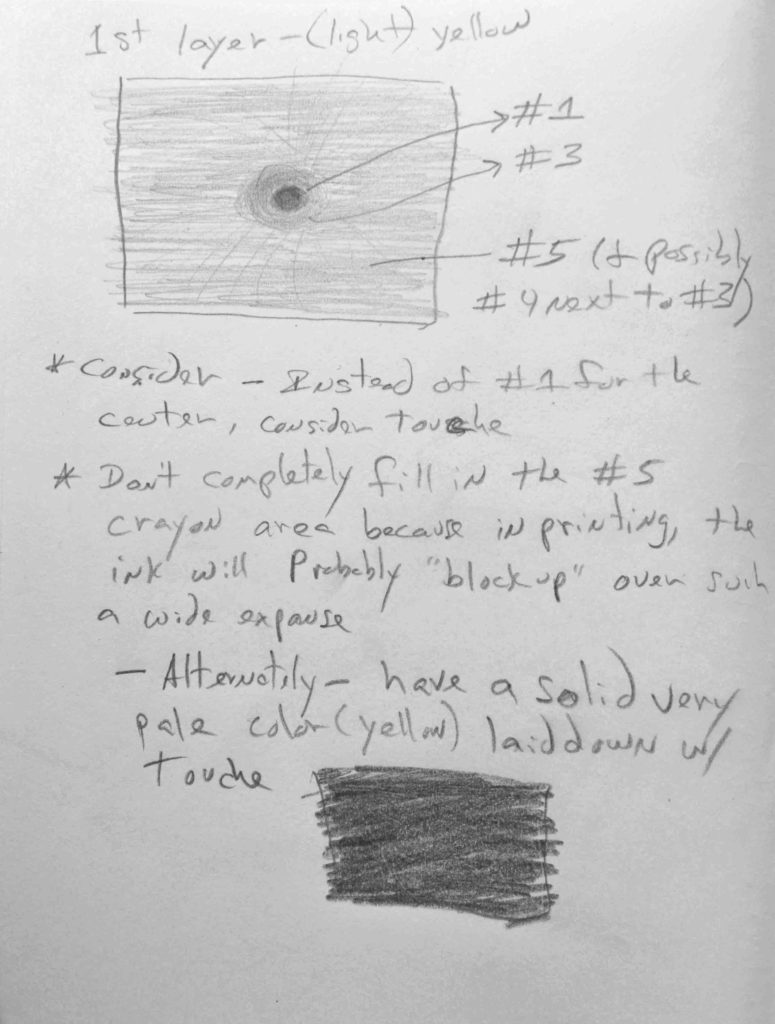 1st layer - (light) yellow
#1
#3
#5 (& possibly
#4 next to #3)
* Consider - Instead of #1 for the
center, consider touche
* Don't completely fill in the #5
crayon area because in printing, the
ink will Probably "block up" over such
a wide expanse
- Alternately - have a solid very
pale color (yellow) laid down w/
Touche